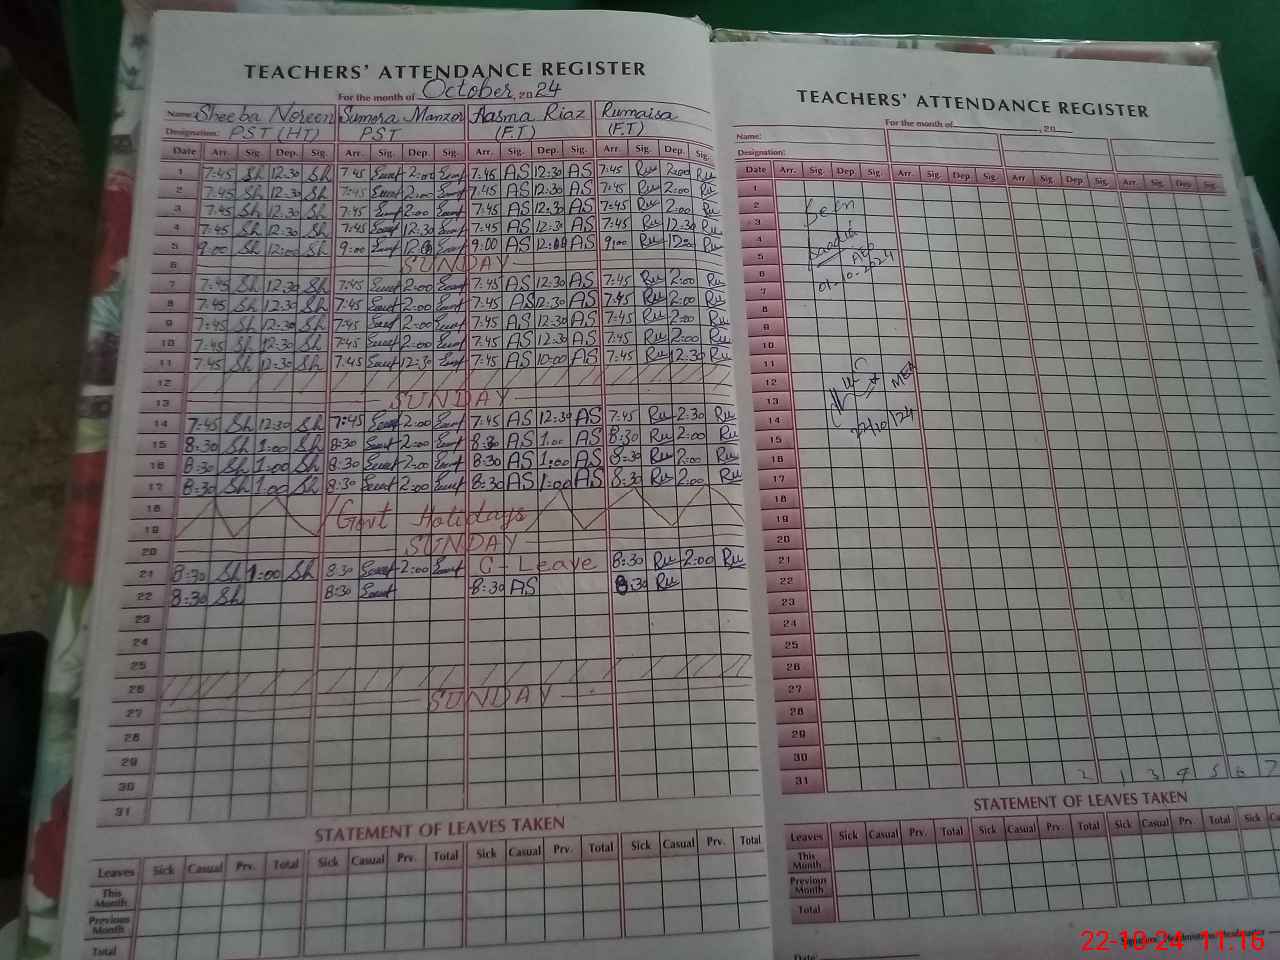 TEACHERS' ATTENDANCE REGISTER
For the month of October, 2024
Name: Sheeba Noreen Sumera Manzor Aasma Riaz Rumaisa
Designation: PST (HT) PST (F.T) (F.T)
Date Arr. Sig. Dep. Sig. Arr. Sig. Dep. Sig. Arr. Sig. Dep. Sig. Arr. Sig. Dep. Sig.
1 7:45 Sh 12:30 Sh 7:45 2:00 7:45 AS 12:30 AS 7:45 Ru 2:00 Ru
2 7:45 Sh 12:30 Sh 7:45 2:00 7:45 AS 12:30 AS 7:45 Ru 2:00 Ru
3 7:45 Sh 12:30 Sh 7:45 2:00 7:45 AS 12:30 AS 7:45 Ru 2:00 Ru
4 7:45 Sh 12:30 Sh 7:45 12:30 7:45 AS 12:30 AS 7:45 Ru 12:30 Ru
5 9:00 Sh 12:00 Sh 9:00 9:00 AS 12:00 AS 9:00 Ru 12:00 Ru
6 SUNDAY
7 7:45 Sh 12:30 Sh 7:45 2:00 7:45 AS 12:30 AS 7:45 Ru 2:00 Ru
8 7:45 Sh 12:30 Sh 7:45 2:00 7:45 AS 12:30 AS 7:45 Ru 2:00 Ru
9 7:45 Sh 12:30 Sh 7:45 2:00 7:45 AS 12:30 AS 7:45 Ru 2:00 Ru
10 7:45 Sh 12:30 Sh 7:45 2:00 7:45 AS 12:30 AS 7:45 Ru 2:00 Ru
11 7:45 Sh 12:30 Sh 7:45 12:30 7:45 AS 10:00 AS 7:45 Ru 12:30 Ru
12
13 SUNDAY
14 7:45 Sh 12:30 Sh 7:45 2:00 7:45 AS 12:30 AS 7:45 Ru 2:30 Ru
15 8:30 Sh 1:00 Sh 8:30 2:00 8:30 AS 1:00 AS 8:30 Ru 2:00 Ru
16 8:30 Sh 1:00 Sh 8:30 2:00 8:30 AS 1:00 AS 8:30 Ru 2:00 Ru
17 8:30 Sh 1:00 Sh 8:30 2:00 8:30 AS 1:00 AS 8:30 Ru 2:00 Ru
18 Govt Holidays
19
20 SUNDAY
21 8:30 Sh 1:00 Sh 8:30 2:00 C-Leave 8:30 Ru 2:00 Ru
22 8:30 Sh 8:30 8:30 AS 8:30 Ru
23
24
25
26
27 SUNDAY
28
29
30
31
STATEMENT OF LEAVES TAKEN
Leaves Sick Casual Prv. Total Sick Casual Prv. Total Sick Casual Prv. Total Sick Casual Prv. Total
This Month
Previous Month
Total
TEACHERS' ATTENDANCE REGISTER
For the month of , 20
Name:
Designation:
Date Arr. Sig. Dep. Sig. Arr. Sig. Dep. Sig. Arr. Sig. Dep. Sig. Arr. Sig. Dep. Sig.
1
2 Seen
3
4
5 AEO
6 01-10-2024
7
8
9
10
11
12 MEA
13
14 22/10/24
15
16
17
18
19
20
21
22
23
24
25
26
27
28
29
30
31 2 1 3 4 5 6 7
STATEMENT OF LEAVES TAKEN
Leaves Sick Casual Prv. Total Sick Casual Prv. Total Sick Casual Prv. Total Sick
This Month
Previous Month
Total
Date:
22-10-24 11:16